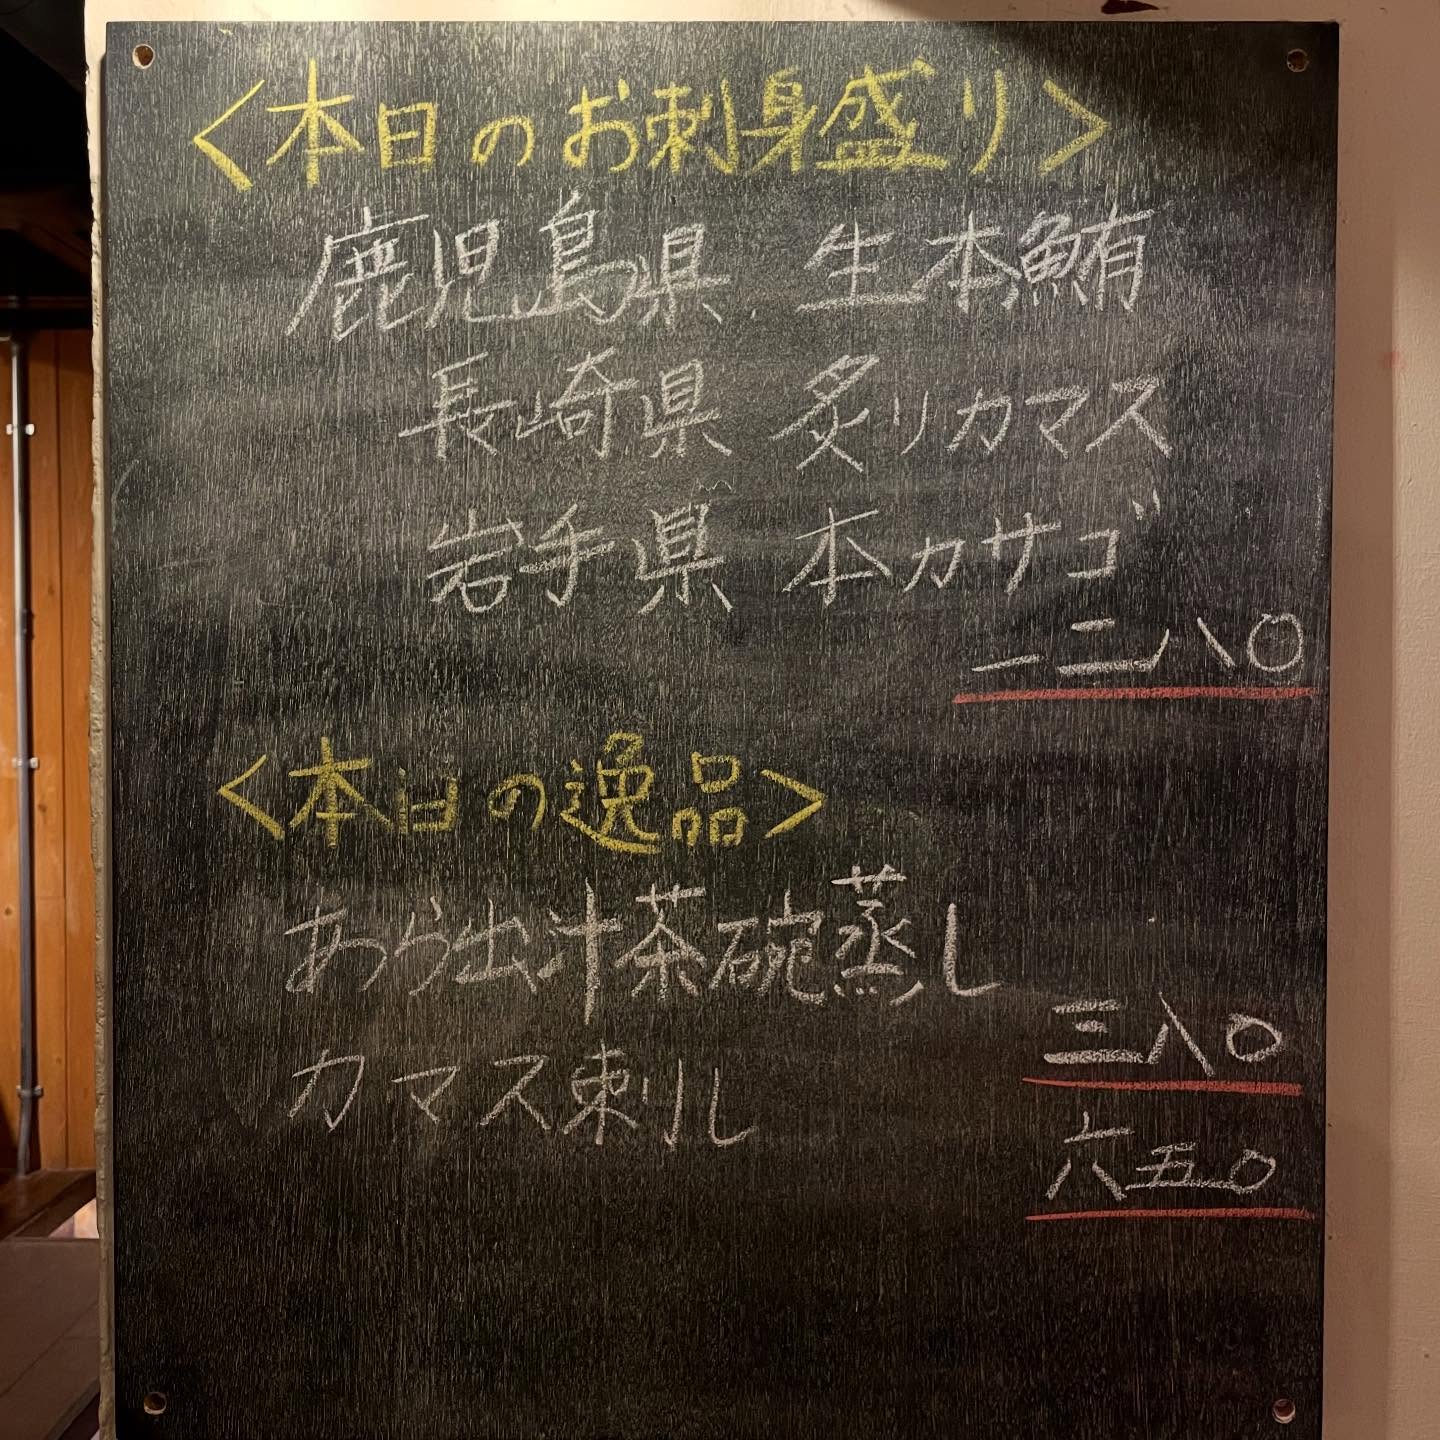 <本日のお刺身盛り>
鹿児島県 生本鮪
長崎県 炙りカマス
岩手県 本カサゴ
一二八〇
<本日の逸品>
あら出汁茶碗蒸し
三八〇
カマス刺し
六五〇